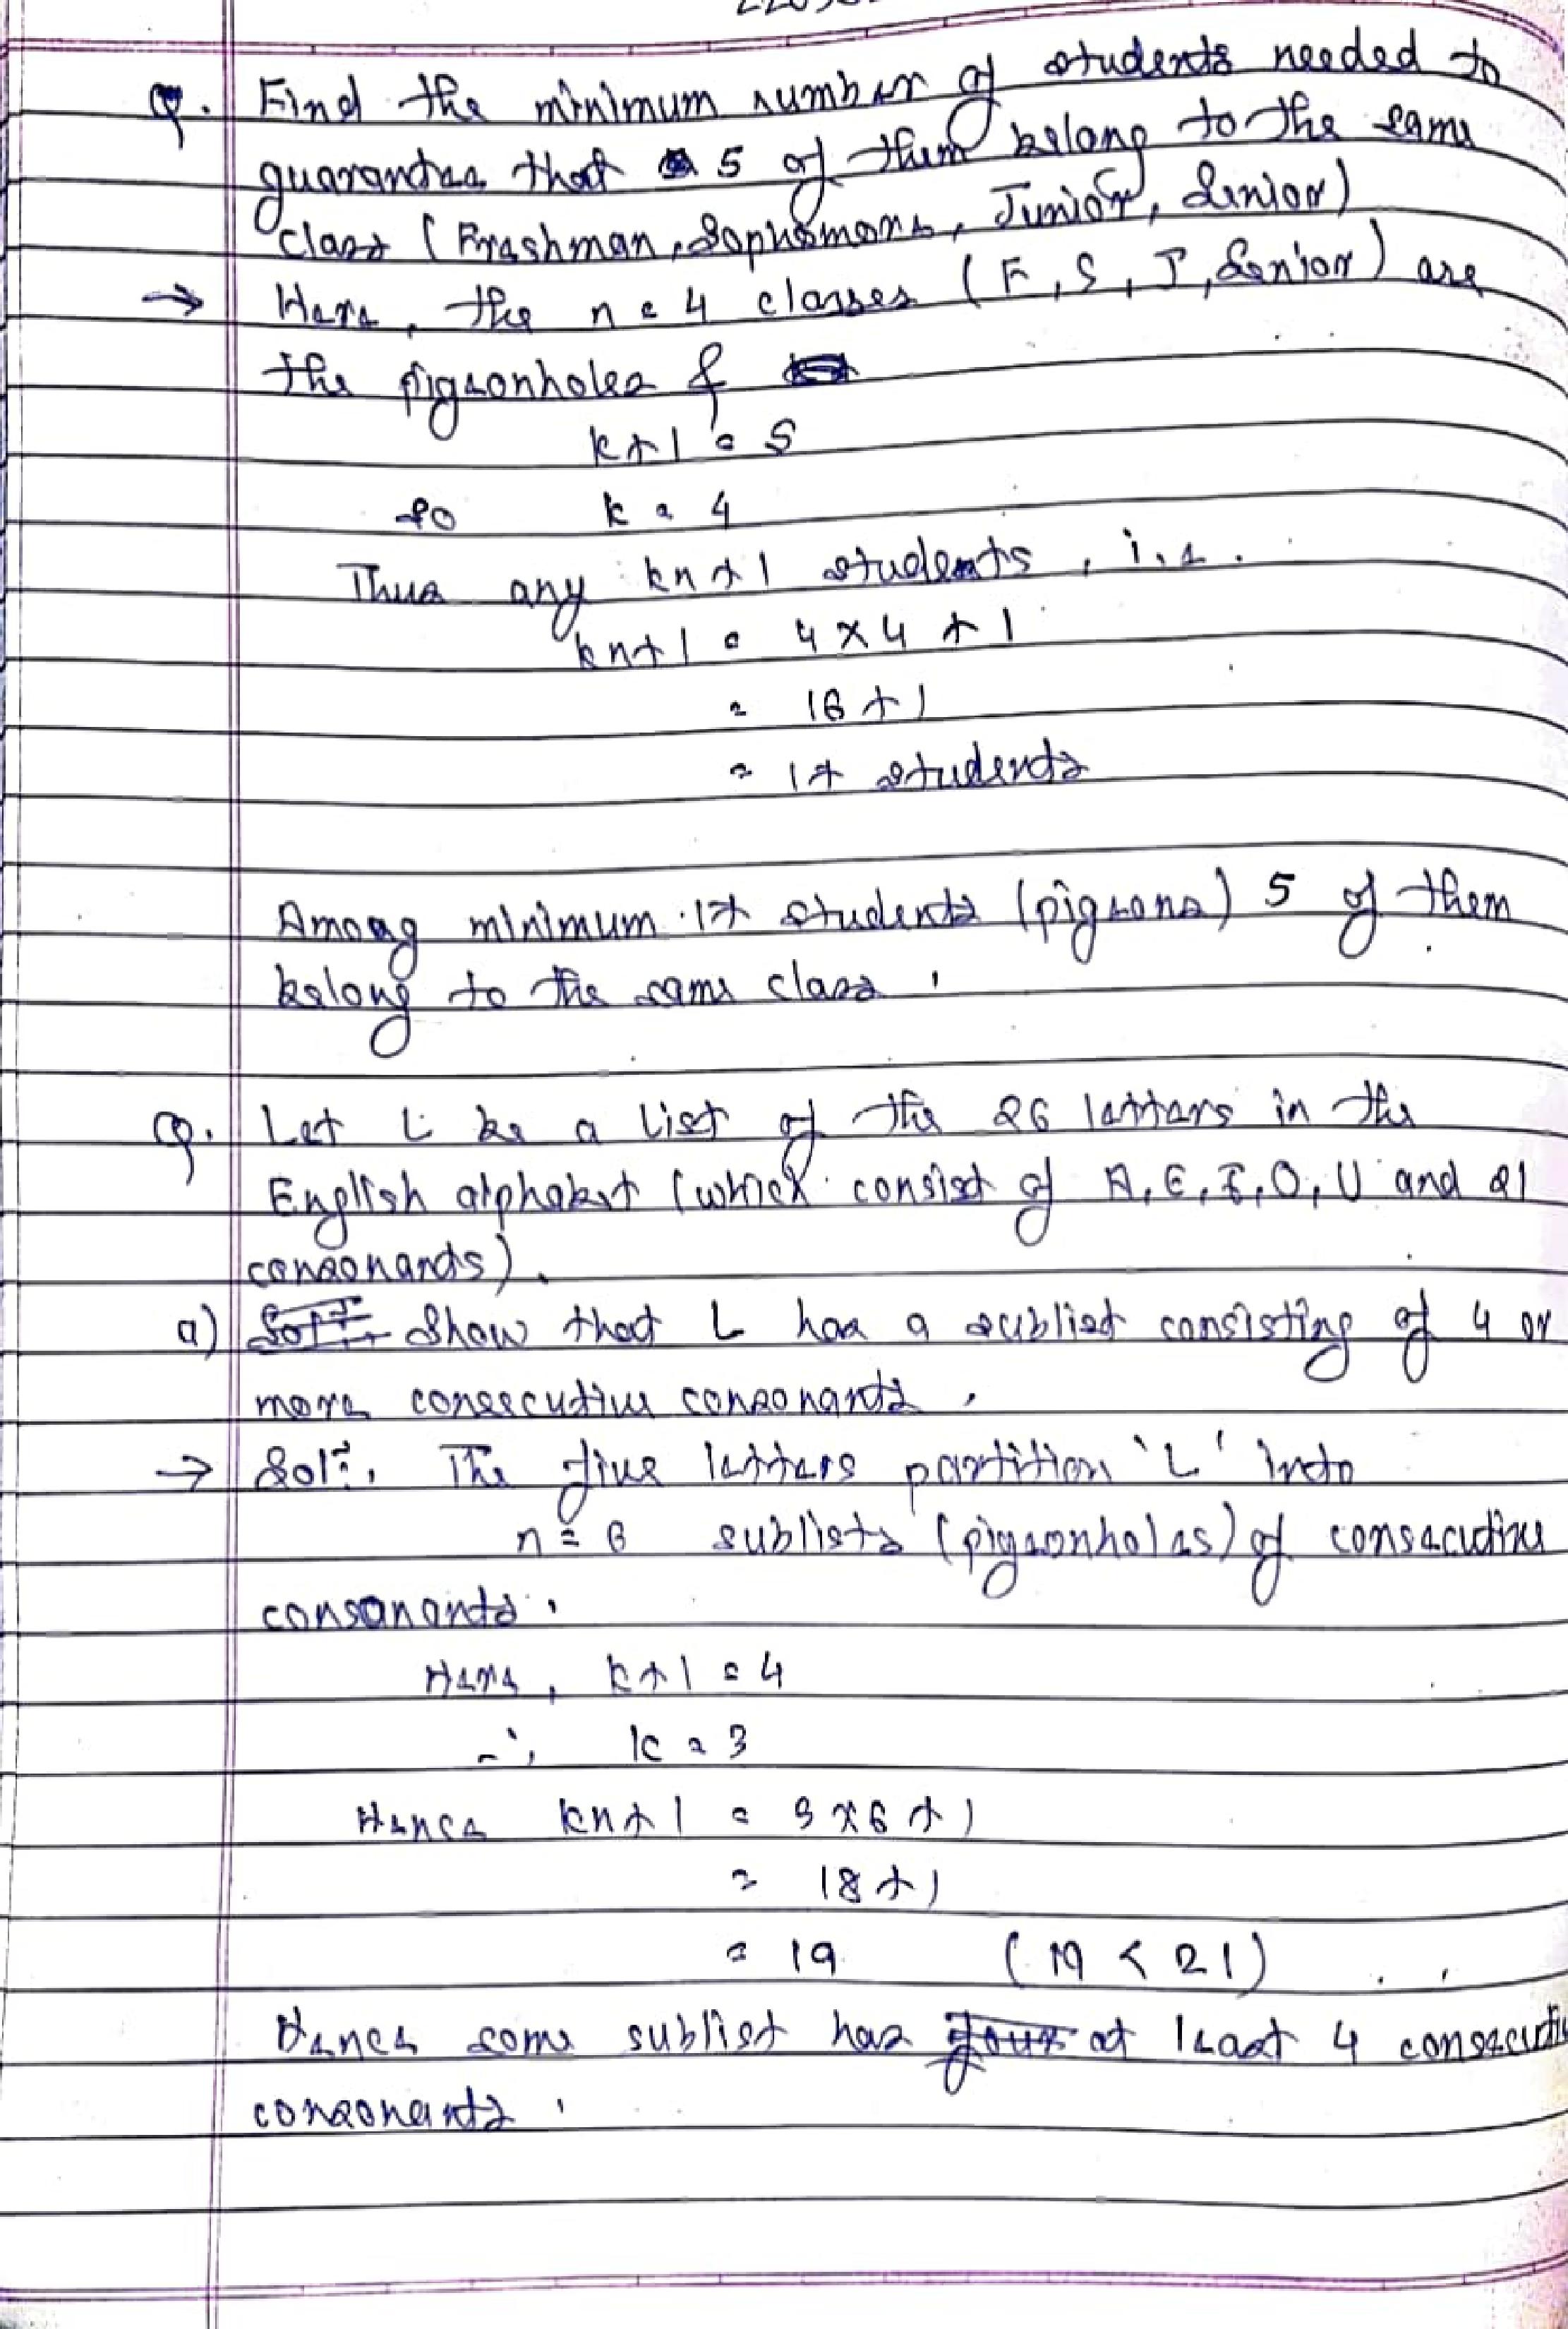 Q. Find the minimum number of students needed to
guarantee that 5 of them belong to the same
class (Freshman, Sophomore, Junior, Senior)
→ Here, the n = 4 classes (F, S, J, Senior) are
the pigeonholes &
k+1 = 5
so k = 4
Thus any kn+1 students, i.e.
kn+1 = 4×4+1
= 16+1
= 17 students
Among minimum 17 students (pigeons) 5 of them
belong to the same class.
Q. Let L be a list of the 26 letters in the
English alphabet (which consist of A, E, I, O, U and 21
consonants).
a) Show that L has a sublist consisting of 4 or
more consecutive consonants.
→ Solⁿ. The five letters partition 'L' into
n = 6 sublists (pigeonholes) of consecutive
consonants.
Here, k+1 = 4
∴ k = 3
Hence kn+1 = 3×6+1
= 18+1
= 19 (19 < 21)
Hence some sublist has at least 4 consecuti
consonants.